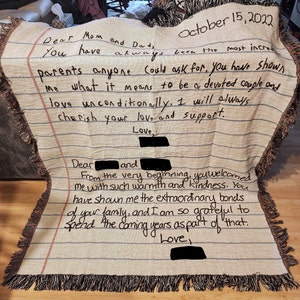 October 15, 2022
Dear Mom and Dad,
You have always been the most incred
parents anyone could ask for. You have shown
me what it means to be a devoted couple and
love unconditionally. I will always
cherish your love and support.
Love,
Dear and
From the very beginning, you welcomed
me with such warmth and kindness. You
have shown me the extraordinary bonds
of your family, and I am so grateful to
spend the coming years as part of that.
Love,